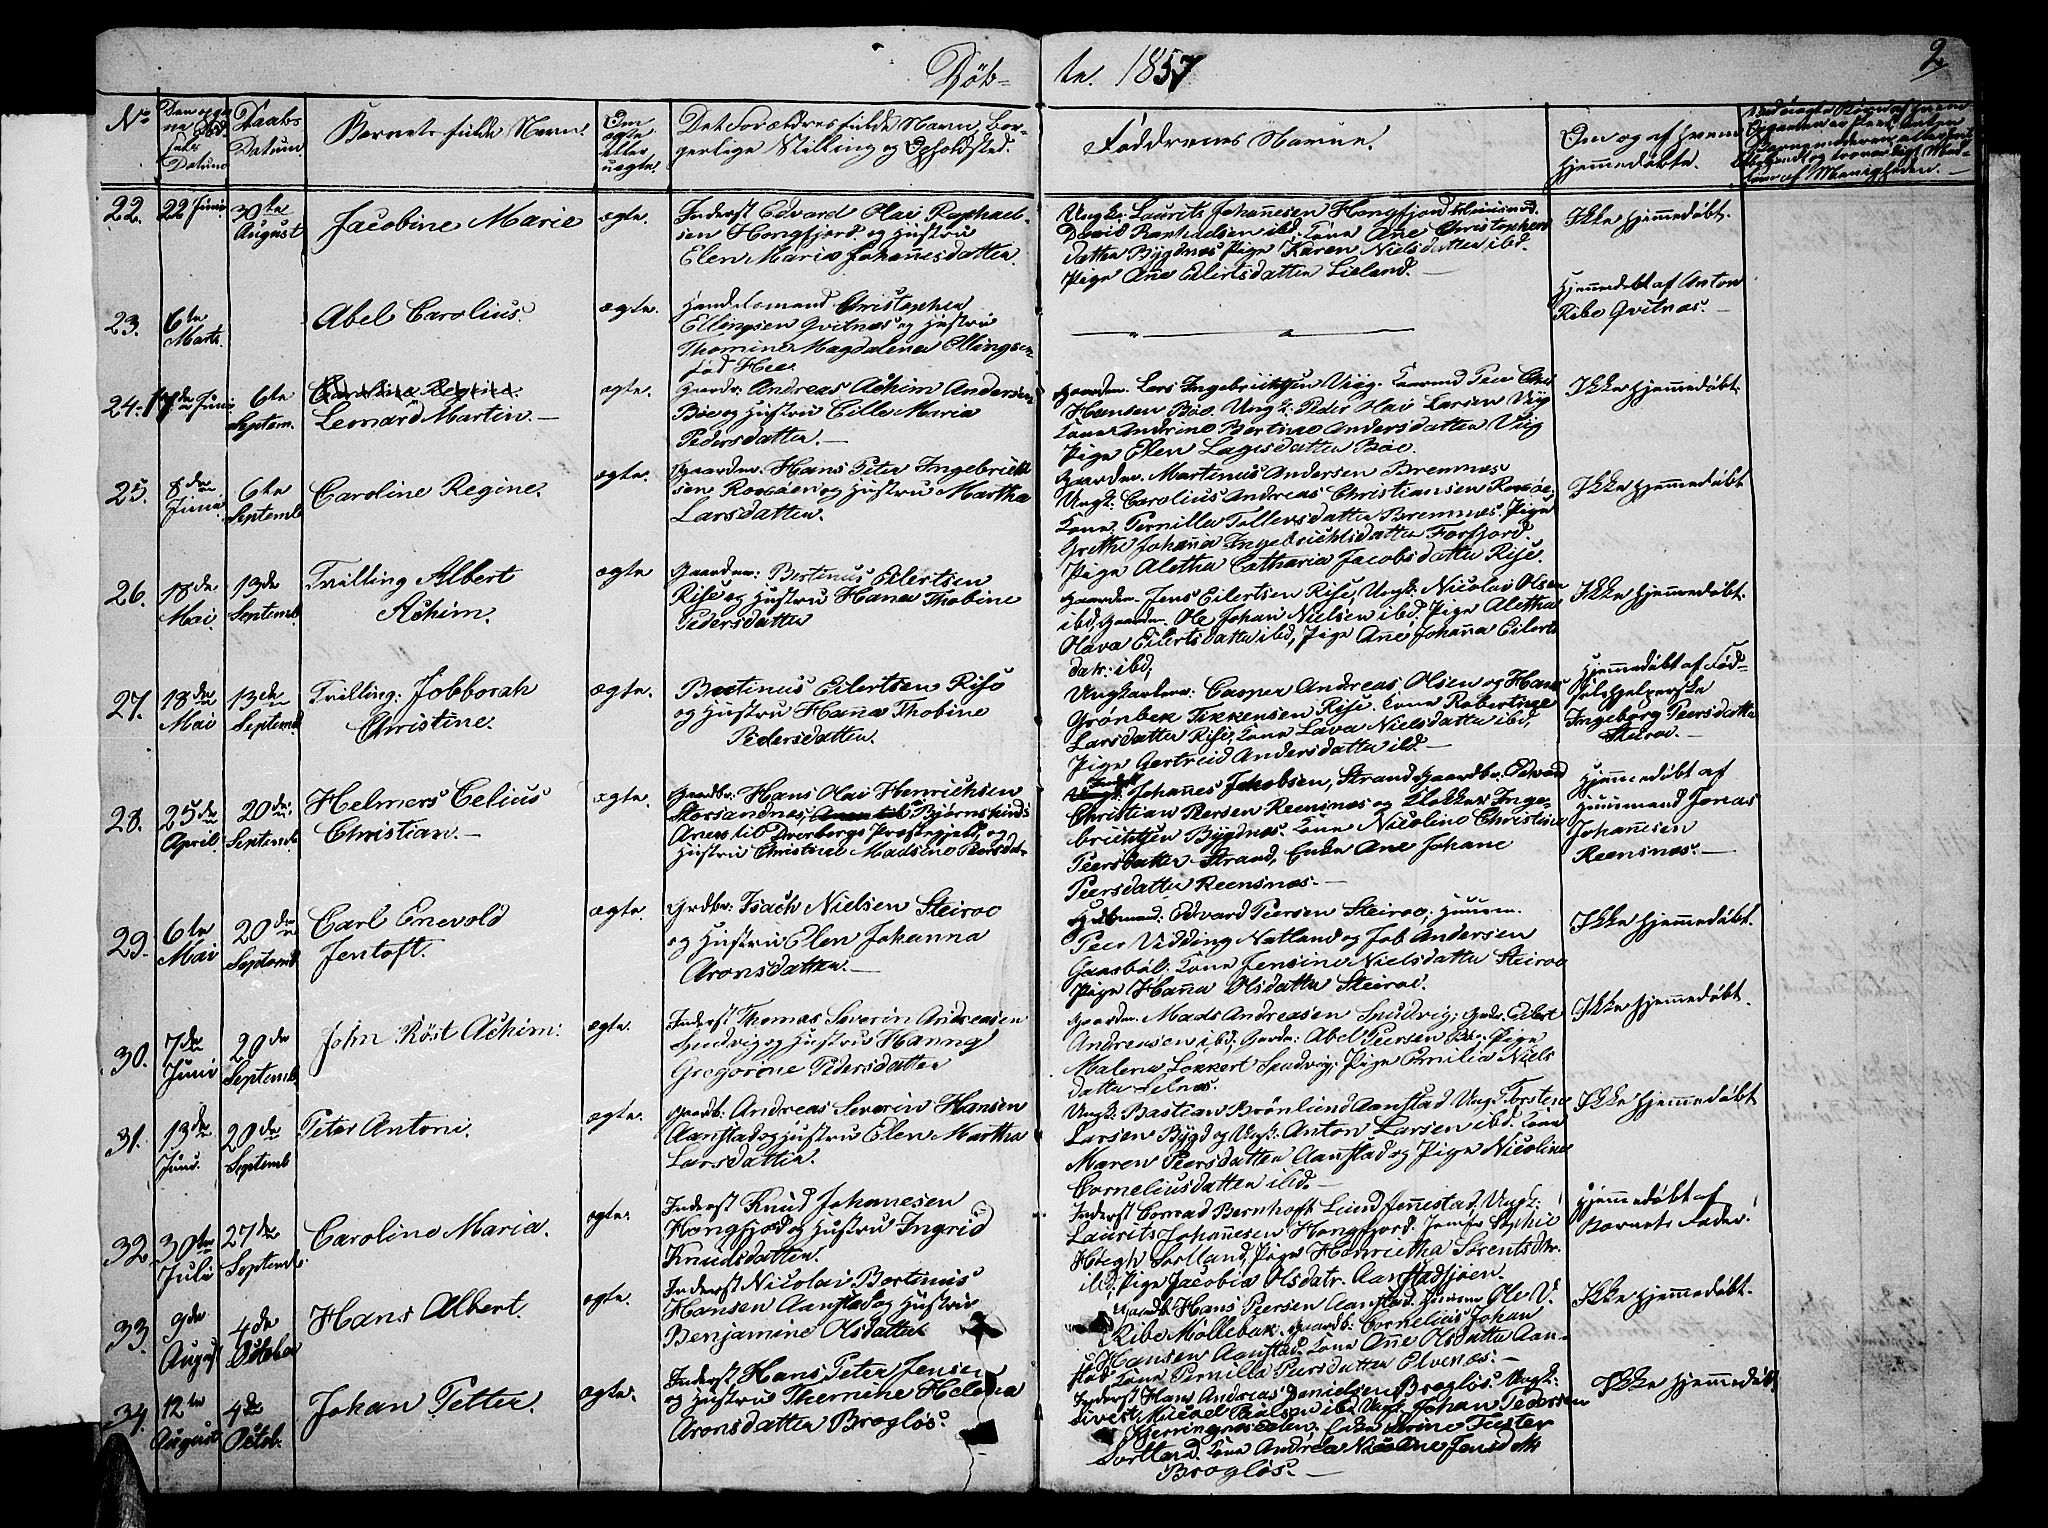 Døb- te. 1857
2
No
Daabs Datum.
Barnets fulde Navn.
Om ægte eller uægte.
Det Forældres fulde Navn, borgerlige Stilling og Opholdssted.
Faddrenes Navne.
Om og af hvem hjemmedøbte.
22.
22 Juni
30te August
Jacobine Marie
ægte.
Inderst Edvard Olai Raphaelsen Hongfjord og Hustru
Elen Maria Johannesdatter.
Ungk: Laurits Johannesen Hongfjord
David Raphaelsen ibd. Kone Ane Christophersdatter Bÿgdnes Pige Karen Nielsdatter ibd.
Pige Ane Eilertsdatter Lieland.
Ikke hjemmedøbt.
23.
6te Marts.
Abel Carolius.
ægte.
Handelsmand Christopher
Ellingsen Qvitnæs og Hustru
Thomine Magdalena Ellingsen
fød Hee.
Hjemmedøbt af Anton
Ribe Qvitnæs.
24.
6te Septem.
Caroline Regine.
Leonard Martin.
ægte.
Gaardm: Andreas Achim Andersen
Bøe og Hustru Cille Maria
Pedersdatter.
Gaardm. Lars Ingebrigtsen Viig.
Hansen Bøe. Ungk: Peder Olai Larsen Viig
Kone Andrine Bertine Andersdatter Viig
Pige Elen Lagesdatter Bøe.
Ikke hjemmedøbt.
25.
8de Juni
6te Septemb
Caroline Regine.
ægte.
Gaardm. Hans Peter Ingebrichtsen
Roesøen og Hustru Martha
Larsdatter.
Gaardm. Martinus Andersen Bremnæs
Ungk: Carolius Andreas Christiansen Roesøe;
Kone Pernilla Tollevsdatter Bremnæs, Pige
Grethe Johanna Ingebrichtsdatter Forfjord.
Pige Aletha Catharia Jacobsdatter Rise.
Ikke hjemmedøbt
26.
18de Mai
13de Septemb.
Tvilling Albert
Achim.
ægte
Gaardm: Bertinus Eilertsen
Rise og Hustru Hana Thobine
Pedersdatter
Gaardm. Jens Eilertsen Rise, Ungk: Nicolai Olsen
ibd, Gaardm. Ole Johan Nielsen ibd, Pige Aletha
Olava Eilertsdatter ibd, Pige Ane Johanna Eilerts
datr. ibd;
Ikke hjemmedøbt.
27.
18de Mai
13de Septemb
Tvilling: Jobborah
Christine.
ægte.
Bertinus Eilertsen Rise
og Hustru Hanna Thobine
Pedersdatter.
Ungkarlene: Casper Andreas Olsen og Hans
Grønbek Tikkensen Rise. Kone Robertine
Larsdatter Rise, Kone Lava Nielsdatter ibd,
Pige Gertruid Andersdatter ibd.
Hjemmedøbt af
Ingeborg Peersdatter
Steiroe.
28.
25de April
20de Septemb
Helmers Celius
Christian.
ægte.
Gaardbr: Hans Olai Henrichsen
Storsandnes, Bjørnskinds
Anex til Dverbergs Præstegjeld, og
Hustru Christine Madsine Peersdatr
Johannes Jakobsen, Strand, Gaardbr. Edvard
Christian Peersen Reensnæs og Klokker Ingebrichtsen Bÿgdnes. Kone Nicoline Christine
Peersdatter Strand, Enke Ane Johane
Peersdatter Reensnæs.
Hjemmedøbt af
Huusmand Jonas
Johannesen
Reensnæs.
29.
6te Mai
20de Septemb
Carl Enevold
Jentoft.
ægte.
Grdbr: Isach Nielsen Steiroe
og Hustru Elen Johanna
Aronsdatter.
Edvard Peersen Steiroe; Huusm.
Peer Vidding Natland og Job Andersen
Gaasbøl. Kone Jensine Nielsdatter Steiroe
Pige Hanna Olsdatter Steiroe.
Ikke hjemmedøbt.
30.
7de Juni
20de Septemb.
John Röst Achim.
ægte.
Inderst Thomas Severin Andreasen
Sandvig og Hustru Hanna
Gregorine Pedersdatter
Gaardm. Mads Andreasen Sandvig; Eilert
Andreasen ibd; Abel Peersen Bø; Pige
Malena Lokkert Sandvig; Pige Ernilia Niels
datter Selnæs.
Ikke hjemmedøbt.
31.
13de Juni.
20de Septemb
Peter Antoni.
ægte.
Gaardb: Andreas Severin Hansen
Aanstad og Hustru Elen Martha
Larsdatter.
Ungk: Bastian Brønlund Aanstad Ung: Torsten
Larsen Bÿgd og Ungk: Anton Larsen ibd. Kone
Maren Peersdatter Aanstad og Pige Nicoline
Corneliusdatter ibd.
Ikke hjemmedøbt
32.
30te Juli
27de Septemb.
Caroline Maria.
ægte.
Inderst Knud Johanesen
Hongfjord og Hustru Ingrid
Knudsdatter.
Inderst Conrad Bernhoft Lund Jennestad. Ungk:
Laurits Johannesen Hongfjord. Jomfru Sophie
Høegh Sortland, Pige Henrietha Sørentsdtr.
ibd, Pige Jacobia Olsdatr. Aanstadsjøen.
Hjemmedøbt af
Barnets Fader.
33.
9de August
4de October
Hans Albert.
ægte.
Inderst Nicolai Bertinus
Hansen Aanstad og Hustru
Benjamine Olsdatter
Hans Peersen Aanstad. Huusm Ole V.
Ribe Møllebak. Gaardb: Cornelius Johan
Hansen Aanstad. Kone Ane Olsdatter Aanstad Kone Pernilla Peersdatter Elvenæs.
Ikke hjemmedøbt.
34.
12te August
4de Octob.
Johan Petter.
ægte.
Inderst Hans Peter Jensen
og Hustru Themine Helena
Aronsdatter Brogløs.
Inderst Hans Andreas Danielsen Brogløs. Ungk:
Sivert Michel ibd. Ungk Johan Pedersen
Enke Serine Feester
Sortland. Kone Andrea Jensdtr
Brogløs.
Ikke hjemmedøbt